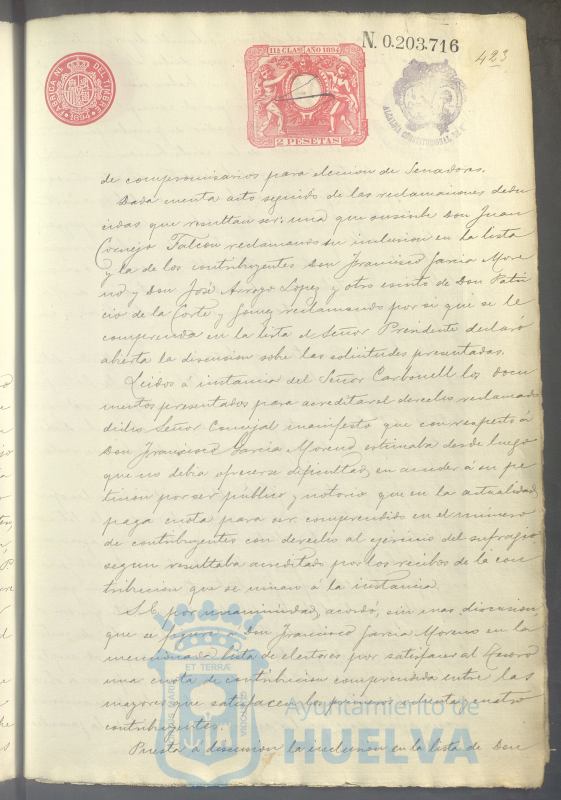 N. 0.203.716
423
11ª CLASE AÑO 1894
2 PESETAS
FABRICA NL DEL TIMBRE
1894
ALCALDIA CONSTITUCIONAL DE
de compromisarios para eleccion de Senadores.
Dada cuenta acto seguido de las reclamaciones dedu-
cidas que resultan ser: una que suscribe Don Juan
Cornejo Falcon reclamando su inclusion en la lista
y la de los contribuyentes Don Francisco Garcia More-
no y Don José Arroyo Lopez y otro escrito de Don Patri-
cio de la Corte y Gomez reclamando por si que se le
comprenda en la lista el Señor Presidente declaró
abierta la discusion sobre las solicitudes presentadas.
Leidos á instancia del Señor Carbonell los docu-
mentos presentados para acreditar el derecho reclamado
dicho Señor Concejal manifestó que con respecto á
Don Francisco Garcia Moreno estimaba desde luego
que no debia ofrecerse dificultad en acceder á su pe-
ticion por ser público y notorio que en la actualidad
paga cuota para ser comprendido en el número
de contribuyentes con derecho al ejercicio del sufragio
segun resultaba acreditado por los recibos de la con-
tribucion que se unian á la instancia.
S.E. por unanimidad, acordó, sin mas discusion,
que se figure á Don Francisco Garcia Moreno en la
mencionada lista de electores por satisfacer al Tesoro
una cuota de contribucion comprendida entre las
mayores que satisfacen los primeros ochenta y cuatro
contribuyentes.
Puesta á discusion la inclusion en la lista de Don
PORTUS MARIS ET TERRÆ CUSTODIA
Ayuntamiento de
HUELVA